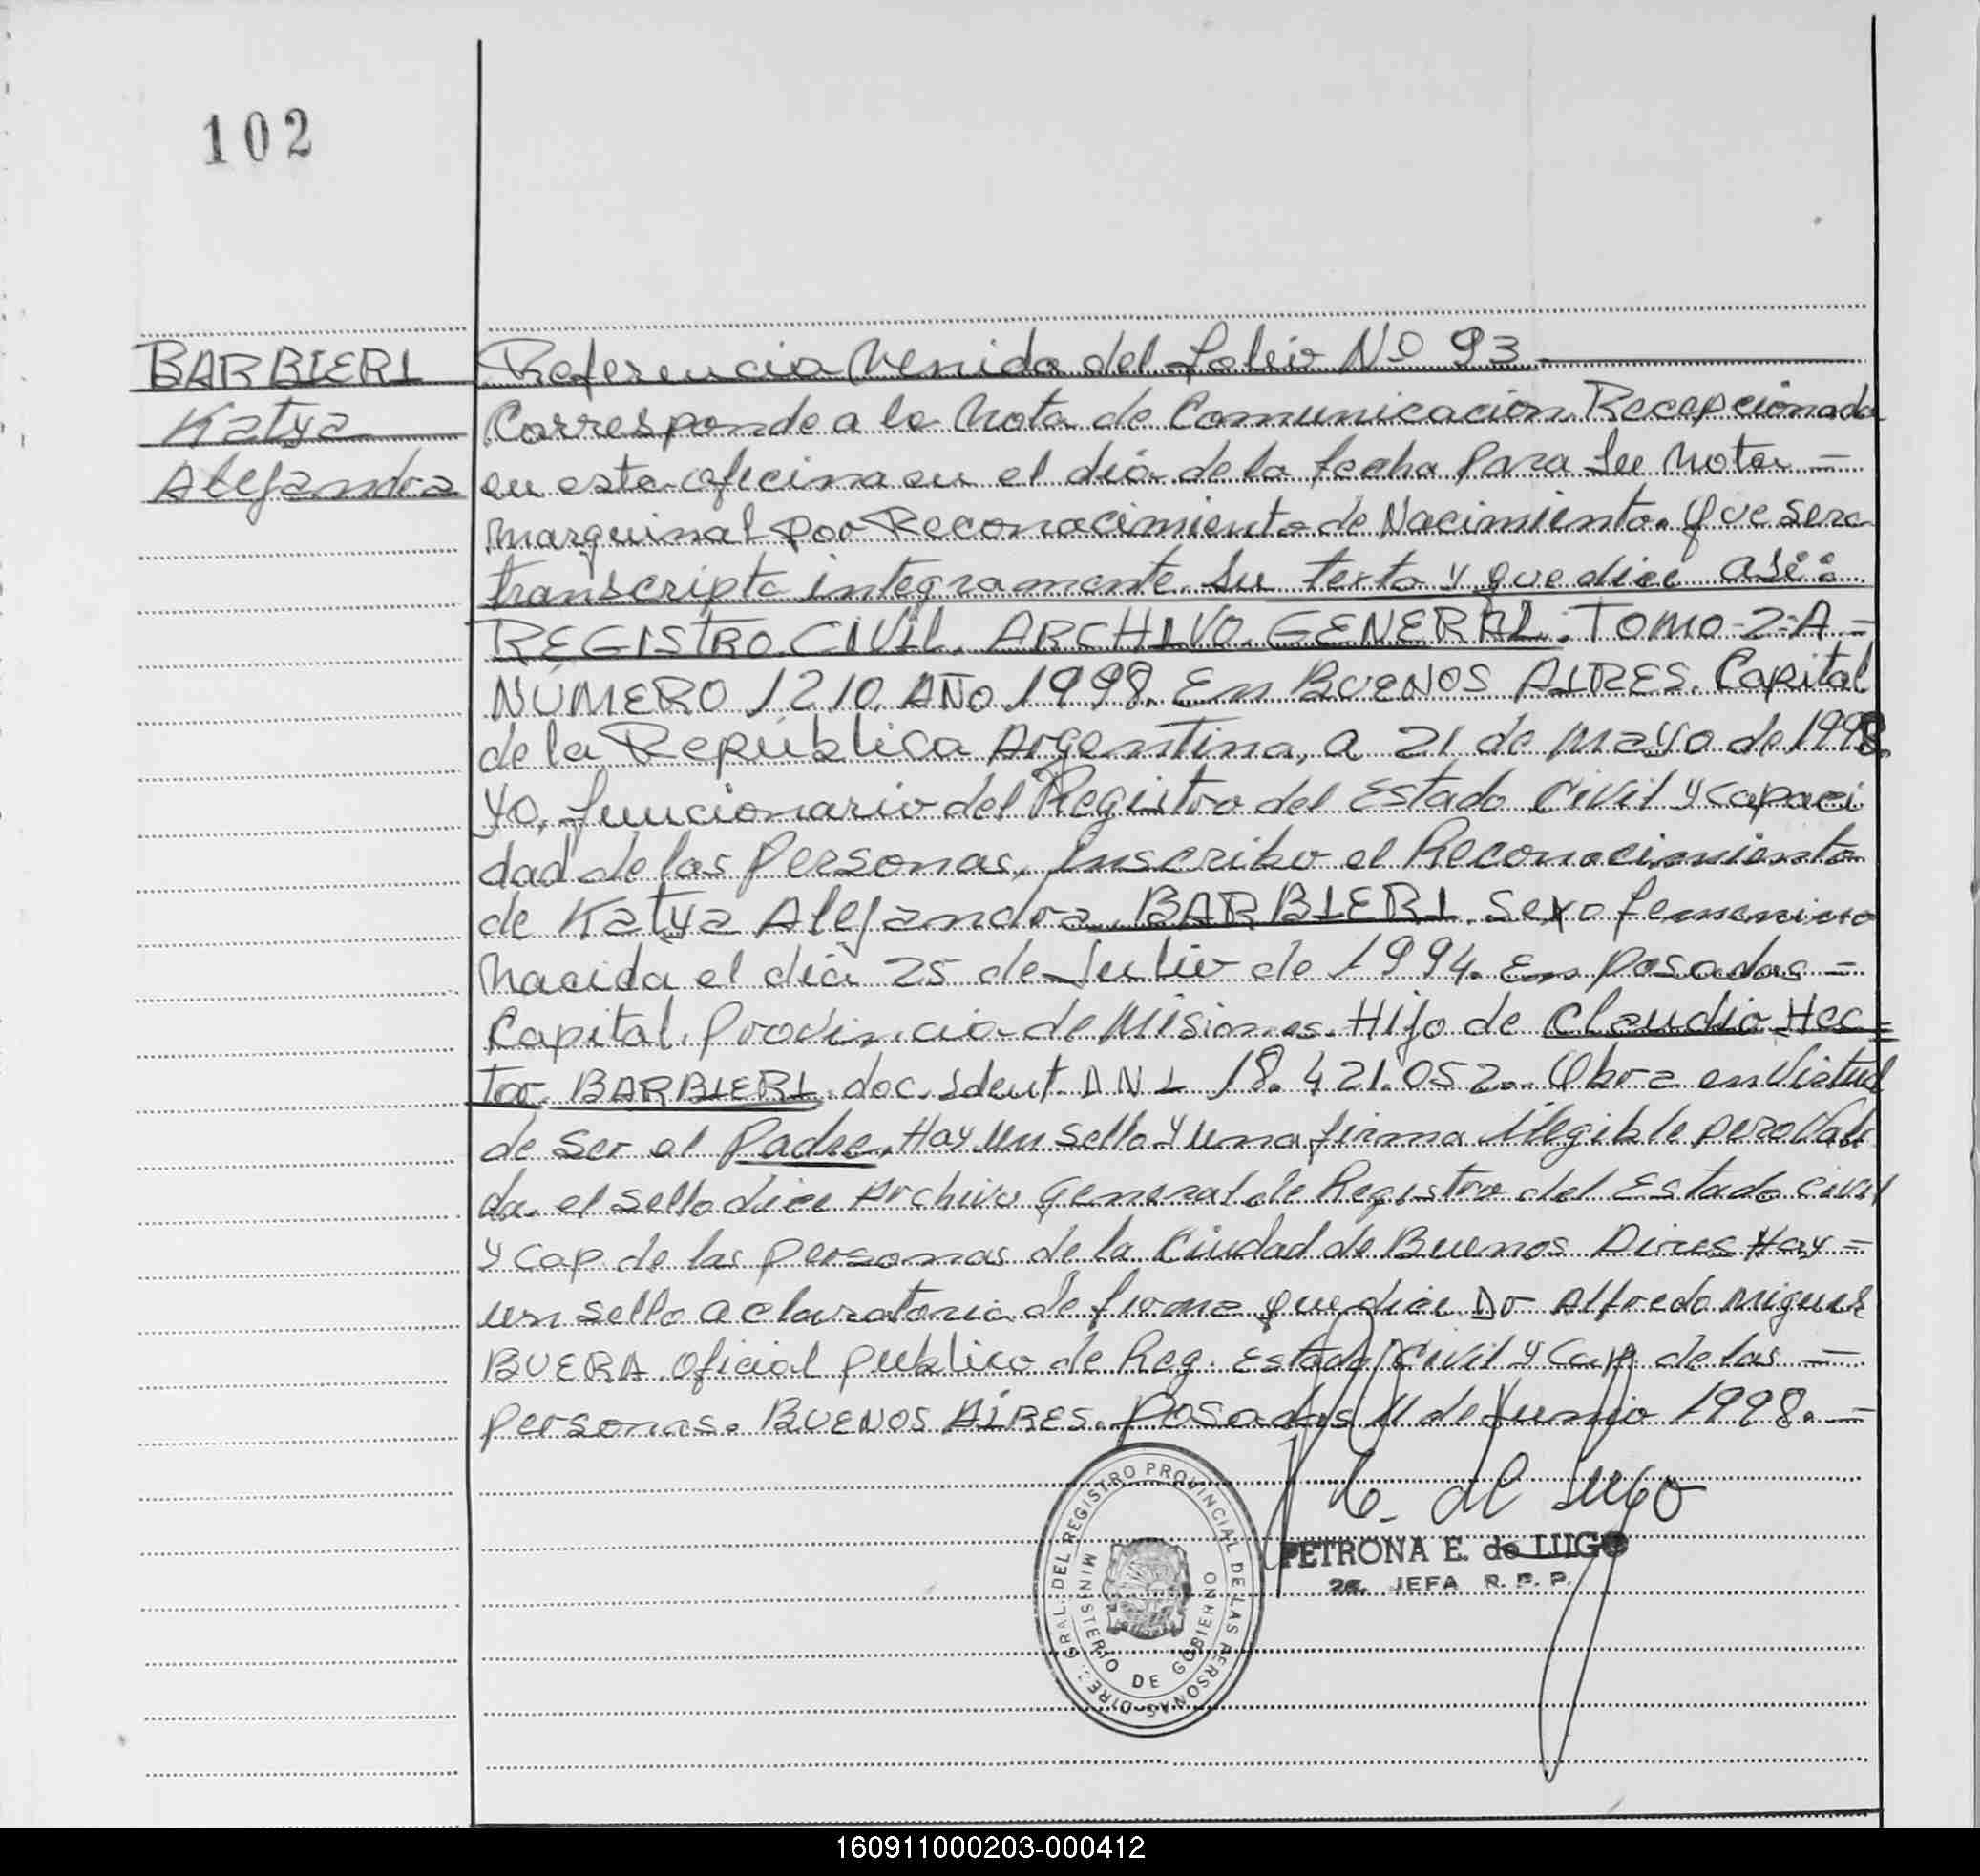 102
BARBIERI
Katya
Alejandra
Referencia Venida del folio Nº 93.
Corresponde a la Nota de Comunicación Recepcionada
en esta oficina en el día de la fecha Para su Nota =
marguinal por Reconocimiento de Nacimiento. que sera
transcripta integramente su texto y que dice así:
REGISTRO CIVIL. ARCHIVO GENERAL. TOMO-2-A.=
NÚMERO 1210. AÑO 1998. En BUENOS AIRES. Capital
de la República Argentina, a 21 de mayo de 1998.
yo, funcionario del Registro del Estado Civil y capaci
dad de las personas, Inscribo el Reconocimiento
de Katya Alejandra BARBIERI. sexo femenino
Nacida el día 25 de Julio de 1994. En Posadas =
Capital. Provincia de Misiones. Hijo de Claudio Hec=
tor BARBIERI. doc. ident. DNI 18.421.052. Obra en Virtud
de ser el Padre. Hay un sello y una firma ilegible pero Vali
da. el sello dice Archivo General de Registro del Estado civil
y cap de las personas de la Ciudad de Buenos Aires Hay =
un sello aclaratoria de firma que dice Dr Alfredo Miguel
BUERA. Oficial publico de Reg. Estado Civil y Cap de las =
personas. BUENOS AIRES. Posadas 11 de Junio 1998. =
E. de Lugo
PETRONA E. de LUGO
2a. JEFA R. P. P.
DIREC. GRAL. DEL REGISTRO PROVINCIAL DE LAS PERSONAS
MINISTERIO DE GOBIERNO
160911000203-000412